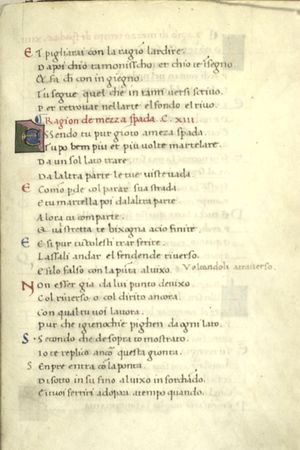 E t pigliarai con la ragio lardire.
D apoi chio tamonisscho et chio te isegno
A fa chi con in giegno.
T u segue quel che in tanti versi scrivo.
P er retrovar nellarte el fondo el rivo.
Ragion de mezza spada. C. XIII.
E Ssendo tu pur gioto ameza spada
T u po bem piu et piu volte martelare.
D a un sol lato trare
D a laltra parte le tue viste vada
E Como pde col parar sua strada
E tu martella poi dalaltra parte
A lora tu comparte.
Q ual stretta te bixogna acio finire
E E si pur tu volesti trar ferire.
L assali andar el fendente riverso.
E silo falso con la puta al vixo. Volcandoli atraverso.
N on esser gia da lui punto devixo
C ol riverso o col dirito ancora.
C on qual tu voi lavora.
P ur che igienochie pighen da ogni lato.
S Secondo che de sopra to mostrato.
I o te replico ancor questa gionta.
S Senpre entra col la ponta.
D i sotto in su fino al vixo in forchado.
E i tuoi ferrir adopra atempo quando.